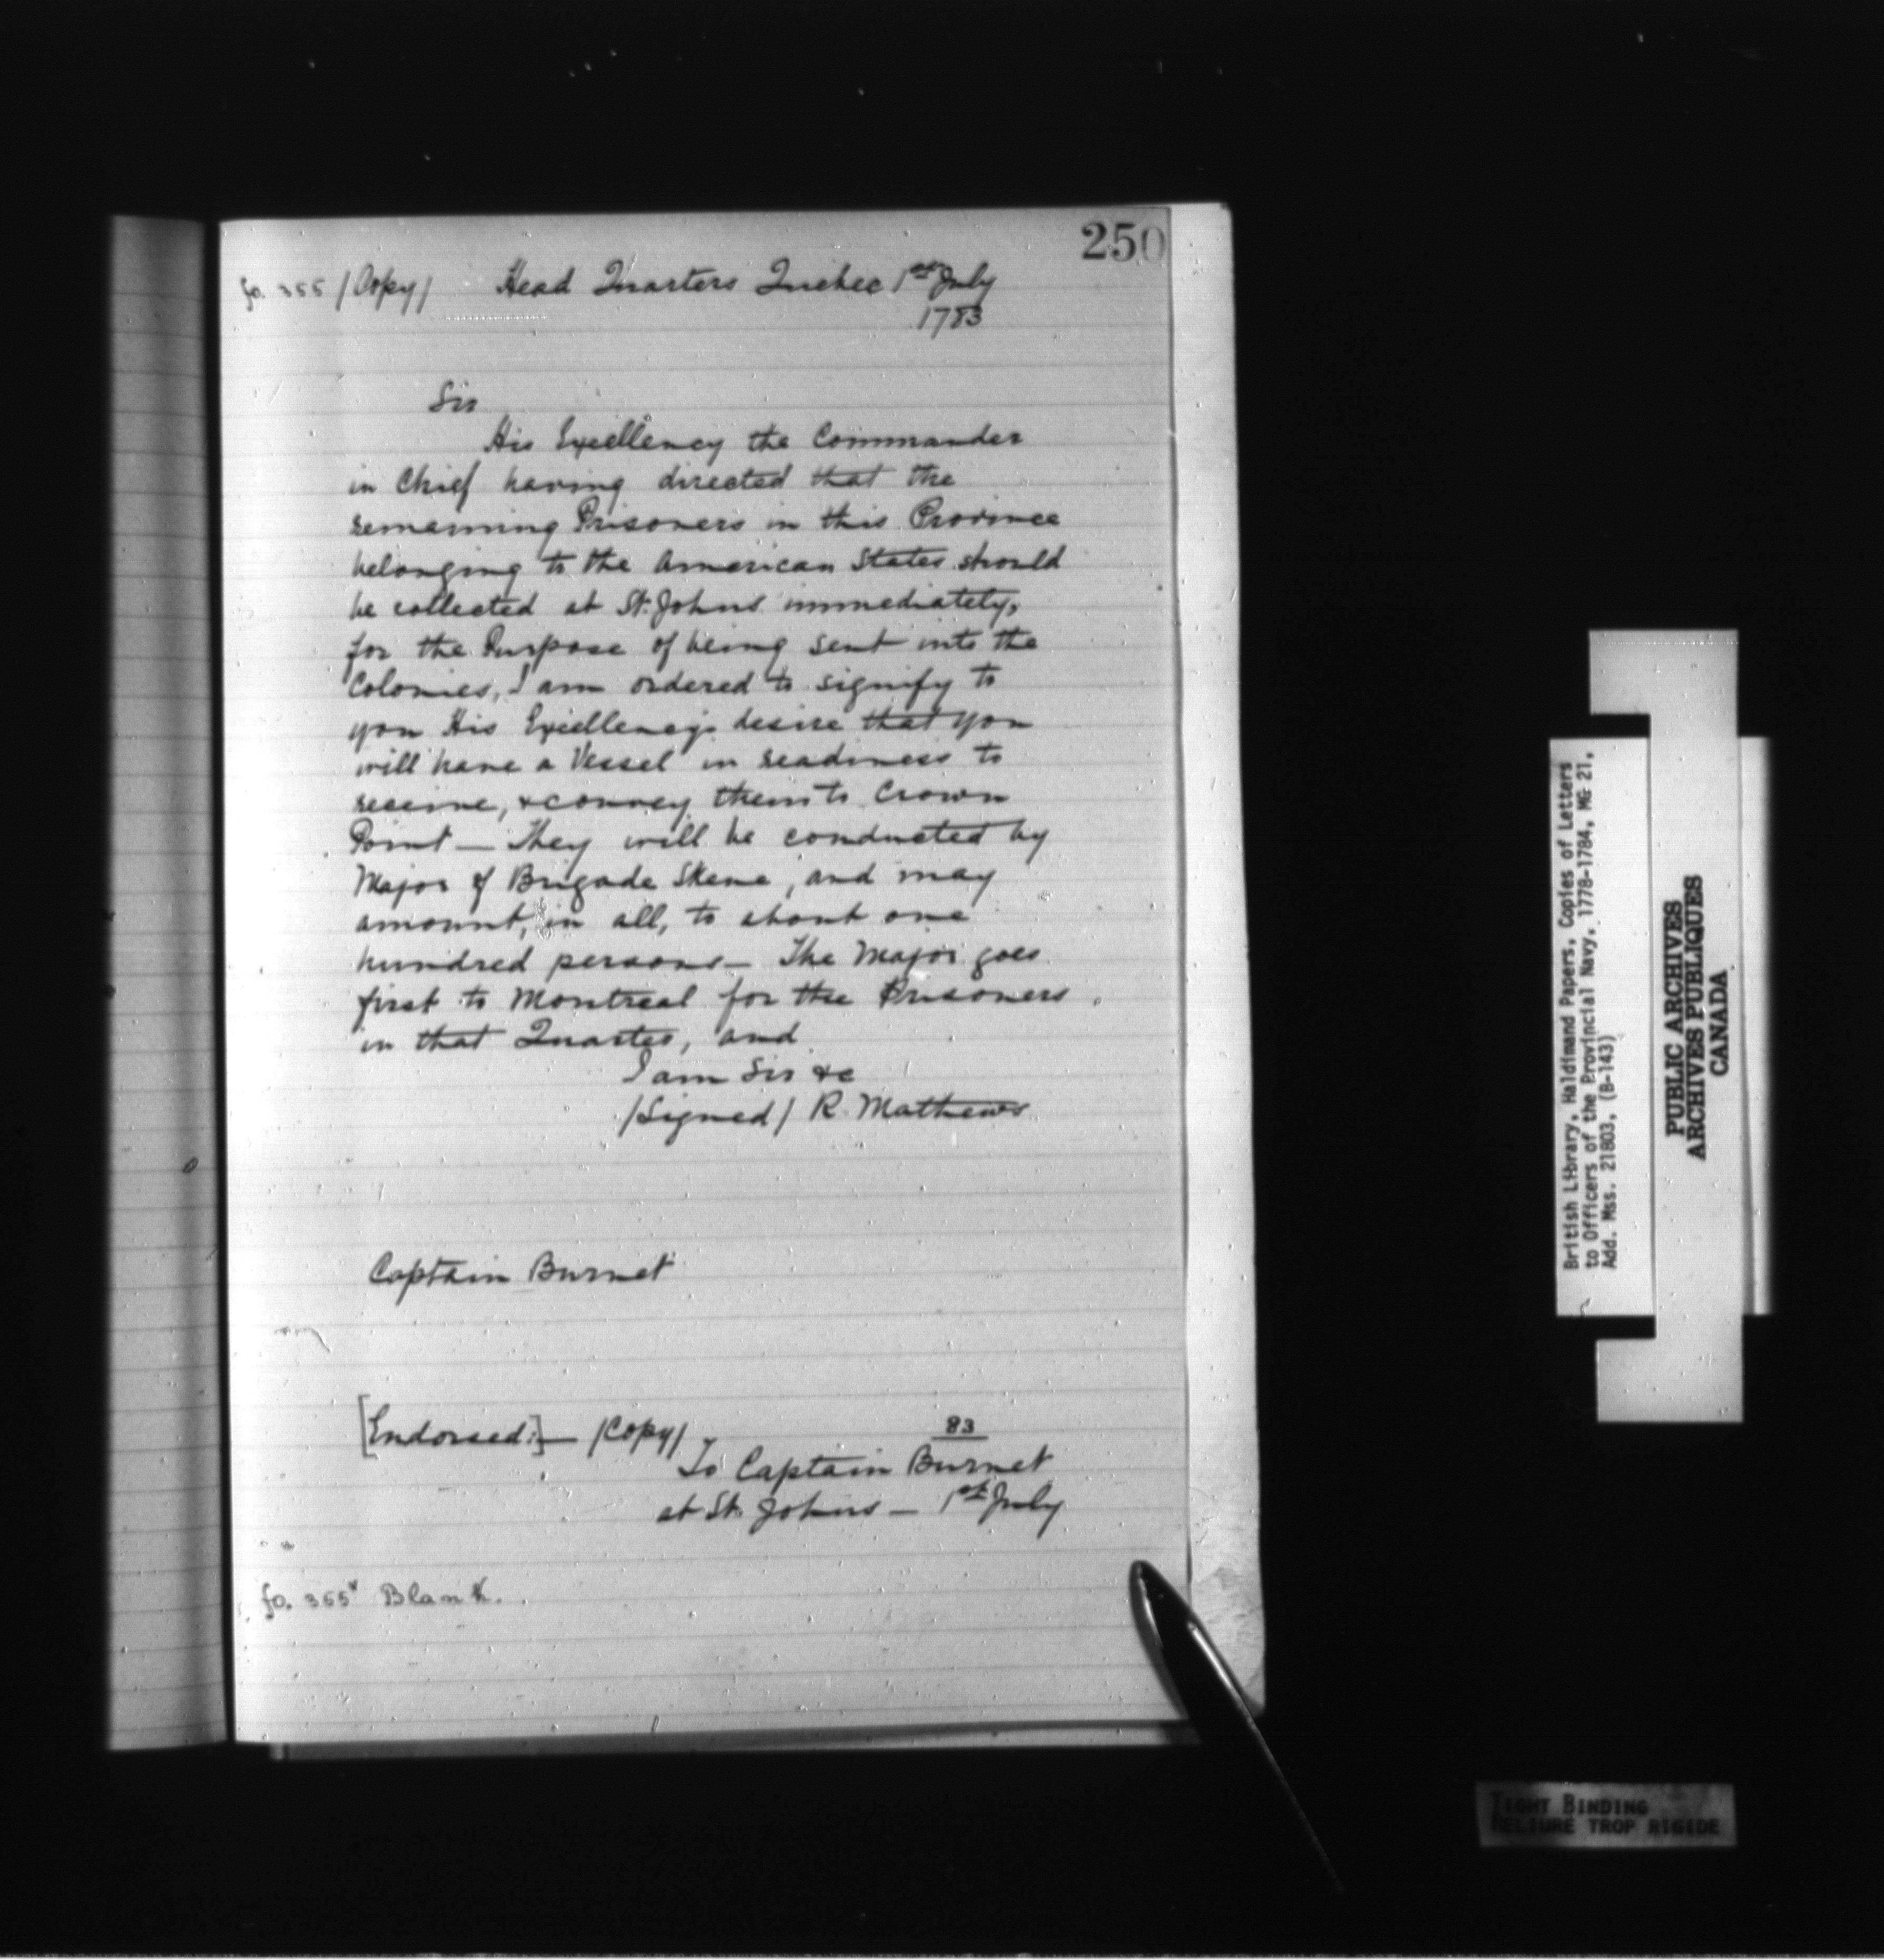 250
fo. 355 /Copy/ Head Quarters Quebec 1st July
1783
Sir
His Excellency the Commander
in Chief having directed that the
remaining Prisoners in this Province
belonging to the American States should
be collected at St. Johns immediately,
for the Purpose of being sent into the
Colonies, I am ordered to signify to
you His Excellency's desire that you
will have a Vessel in readiness to
receive, & convey them to Crown
Point — They will be conducted by
Major of Brigade Skene, and may
amount, in all, to about one
hundred persons — The Major goes
first to Montreal for the Prisoners
in that Quarter, and
I am Sir &c
/Signed/ R. Mathews
Captain Burnet
[Endorsed:] — /Copy/ 83
To Captain Burnet
at St. Johns — 1st July
fo. 355v Blank.
British Library, Haldimand Papers, Copies of Letters
to Officers of the Provincial Navy, 1778-1784, MG 21,
Add. Mss. 21803, (B-143)
PUBLIC ARCHIVES
ARCHIVES PUBLIQUES
CANADA
TIGHT BINDING
RELIURE TROP RIGIDE